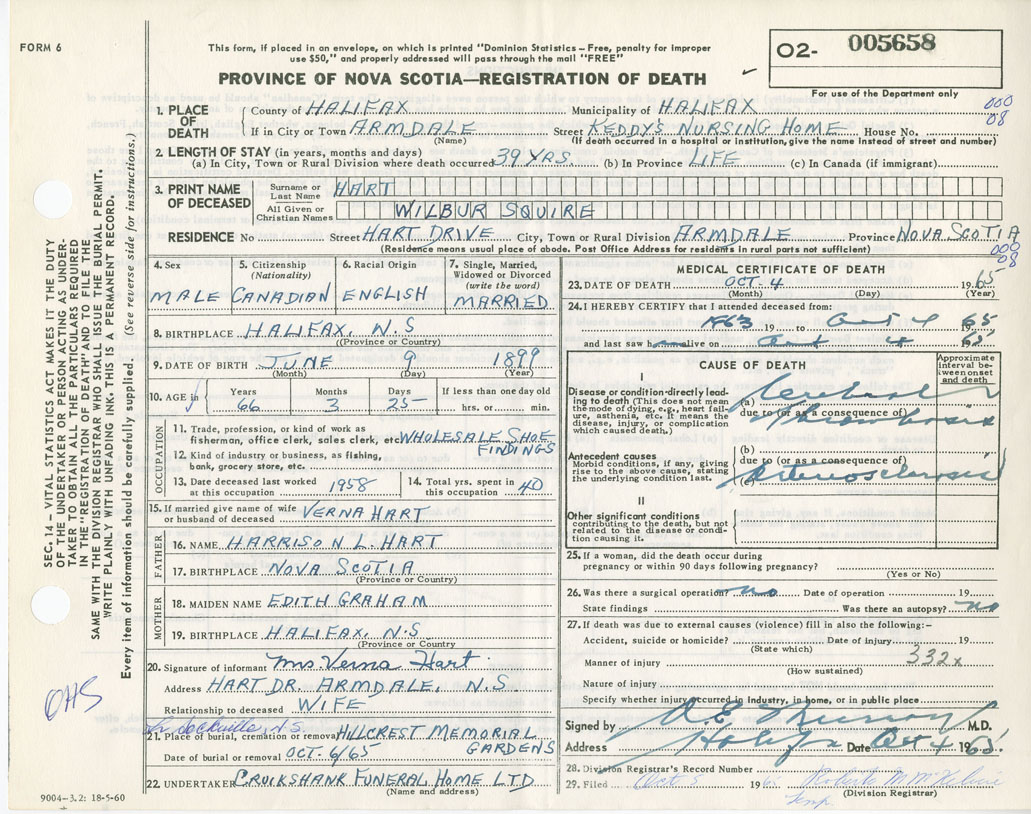 FORM 6
This form, if placed in an envelope, on which is printed "Dominion Statistics – Free, penalty for improper
use $50," and properly addressed will pass through the mail "FREE"
PROVINCE OF NOVA SCOTIA—REGISTRATION OF DEATH
O2- 005658
For use of the Department only
000
08
1. PLACE OF DEATH
County of HALIFAX Municipality of HALIFAX
If in City or Town ARMDALE Street KEDDY'S NURSING HOME House No.
(Name) (If death occurred in a hospital or institution, give the name instead of street and number)
2. LENGTH OF STAY (in years, months and days)
(a) In City, Town or Rural Division where death occurred 39 YRS (b) In Province LIFE (c) In Canada (if immigrant)
3. PRINT NAME OF DECEASED
Surname or Last Name HART
All Given or Christian Names WILBUR SQUIRE
RESIDENCE No Street HART DRIVE City, Town or Rural Division ARMDALE Province NOVA SCOTIA
(Residence means usual place of abode. Post Office Address for residents in rural parts not sufficient)
000
08
4. Sex
MALE
5. Citizenship
(Nationality)
CANADIAN
6. Racial Origin
ENGLISH
7. Single, Married,
Widowed or Divorced
(write the word)
MARRIED
8. BIRTHPLACE HALIFAX, N.S
(Province or Country)
9. DATE OF BIRTH JUNE 9 1899
(Month) (Day) (Year)
10. AGE in Years Months Days If less than one day old
66 3 25 hrs. or min.
OCCUPATION
11. Trade, profession, or kind of work as
fisherman, office clerk, sales clerk, etc. WHOLESALE SHOE
FINDINGS
12. Kind of industry or business, as fishing,
bank, grocery store, etc.
13. Date deceased last worked
at this occupation 1958
14. Total yrs. spent in
this occupation 40
15. If married give name of wife
or husband of deceased VERNA HART
FATHER
16. NAME HARRISON L. HART
17. BIRTHPLACE NOVA SCOTIA
(Province or Country)
MOTHER
18. MAIDEN NAME EDITH GRAHAM
19. BIRTHPLACE HALIFAX, N.S
(Province or Country)
20. Signature of informant Mrs Verna Hart
Address HART DR. ARMDALE, N.S.
Relationship to deceased WIFE
Sackville, N.S.
21. Place of burial, cremation or removal HILLCREST MEMORIAL
GARDENS
Date of burial or removal OCT. 6/65
22. UNDERTAKER CRUIKSHANK FUNERAL HOME LTD
(Name and address)
MEDICAL CERTIFICATE OF DEATH
23. DATE OF DEATH OCT. 4 1965
(Month) (Day) (Year)
24. I HEREBY CERTIFY that I attended deceased from:
1963 19 to Oct 4 1965
and last saw h alive on Oct 4 1965
CAUSE OF DEATH
Approximate
interval be-
tween onset
and death
I
Disease or condition directly lead-
ing to death (This does not mean
the mode of dying, e.g., heart fail-
ure, asthenia, etc. It means the
disease, injury, or complication
which caused death)
(a) Cerebral
due to (or as a consequence of)
Thrombosis
Antecedent causes
Morbid conditions, if any, giving
rise to the above cause, stating
the underlying condition last.
(b)
due to (or as a consequence of)
(c) Arteriosclerosis
II
Other significant conditions
contributing to the death, but not
related to the disease or condi-
tion causing it.
25. If a woman, did the death occur during
pregnancy or within 90 days following pregnancy?
(Yes or No)
26. Was there a surgical operation no Date of operation 19
State findings Was there an autopsy? no
27. If death was due to external causes (violence) fill in also the following:–
Accident, suicide or homicide? Date of injury 19
(State which)
Manner of injury 332x
(How sustained)
Nature of injury
Specify whether injury occurred in industry, in home, or in public place
Signed by M.D.
Address Halifax Date Oct 4 1965
28. Division Registrar's Record Number
29. Filed Oct 5 1965
(Division Registrar)
Temp.
SEC. 14 – VITAL STATISTICS ACT MAKES IT THE DUTY
OF THE UNDERTAKER OR PERSON ACTING AS UNDER-
TAKER TO OBTAIN ALL THE PARTICULARS REQUIRED
IN THE "REGISTRATION OF DEATH" AND TO FILE THE
SAME WITH THE DIVISION REGISTRAR WHO SHALL ISSUE THE BURIAL PERMIT.
WRITE PLAINLY WITH UNFADING INK. THIS IS A PERMANENT RECORD.
Every item of information should be carefully supplied. (See reverse side for instructions.)
OHS
9004–3.2: 18-5-60